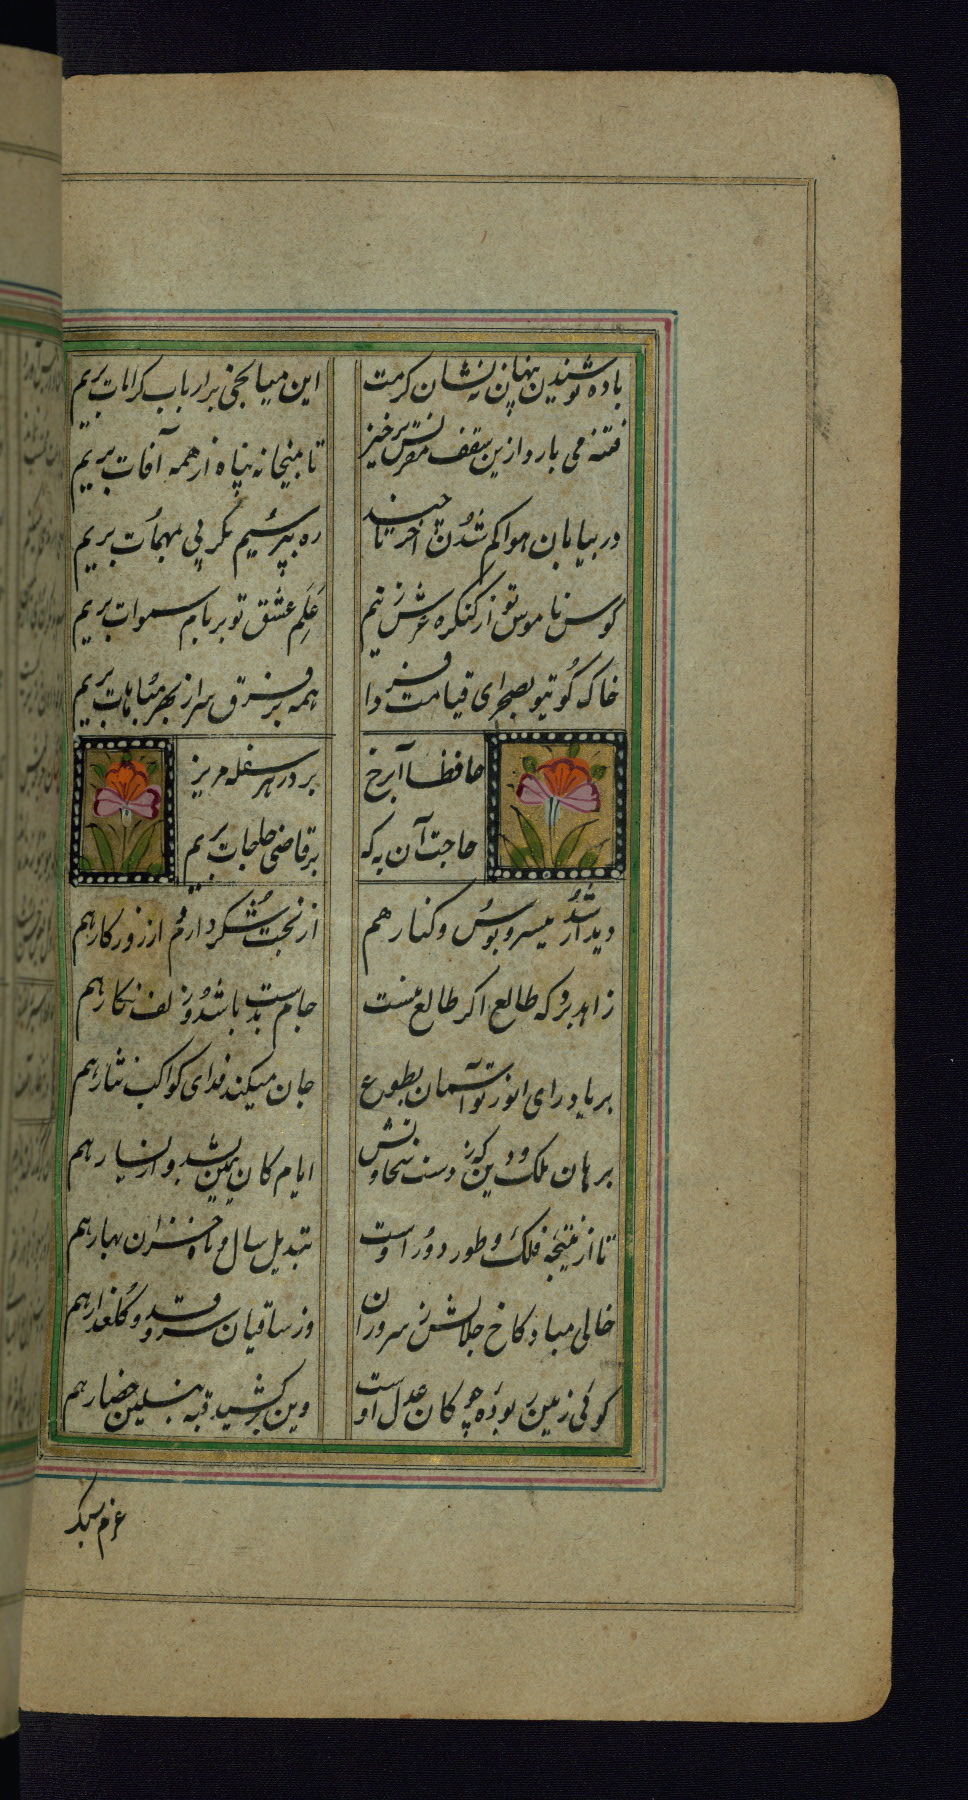 باده نوشیدن پنهان نه نشان کرمت
این میانجی بر ارباب کرامات بریم
فتنه می بارد ازین سقف مقرنس برخیز
تا بمیخانه پناه از همه آفات بریم
در بیابان هوا کم شدن آخر تا چند
ره بپرسیم مگر پی بمهمات بریم
کوس ناموس تو از کنکره عرش زنیم
علم عشق تو بر بام سموات بریم
خاک کوی تو بصحرای قیامت فردا
همه بر فرق سر از بهر مباهات بریم
حافظا آب رخ
بر در هر سفله مریز
حاجت آن به که
بر قاضی حاجات بریم
دیدار شد میسر و بوس و کنار هم
از بخت شکر دارم و از روزکار هم
زاهد برو که طالع اکر طالع منست
جام بدست باشد و زلف نکار هم
بر یاد رای انور تو آسمان بطوع
جان میکند فدای کواکب نثار هم
برهان ملک و دین که ز دست
ایام کان یمین شد و ار یسار هم
تا از نتیجه فلک و طور دور اوست
تبدیل سال و ماه و خزان و بهار هم
خالی مباد کاخ جلالش ز سروران
وز ساقیان سرو قد و کلعذار هم
کوی زمین ربوده چوکان عدل اوست
وین برکشیده قبه نیلین حصار هم
عزم سبک